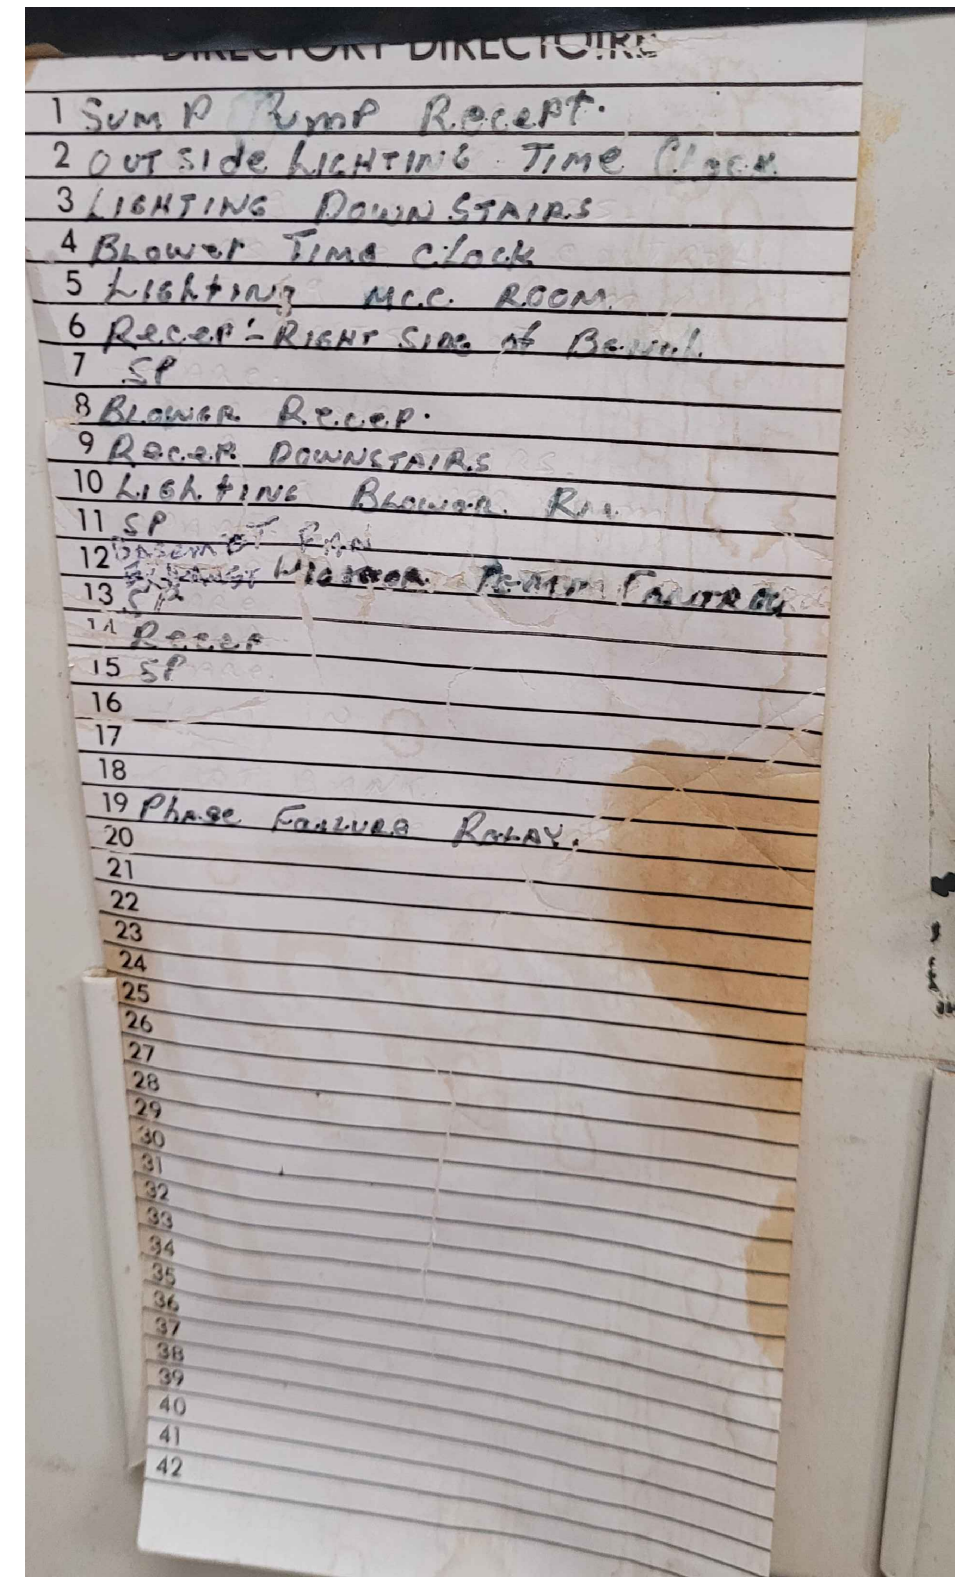 DIRECTORY-DIRECTOIRE
1 SUMP PUMP RECEPT.
2 OUTSIDE LIGHTING TIME CLOCK
3 LIGHTING DOWNSTAIRS
4 BLOWER TIME CLOCK
5 LIGHTING MCC. ROOM
6 RECEP'- RIGHT SIDE of BENCH
7 SP
8 BLOWER RECEP.
9 RECEP. DOWNSTAIRS
10 LIGHTING BLOWER RM
11 SP
BASEMENT FAN
12 EXHAUST
13 SP
14 RECEP
15 SP
16
17
18
19 Phase FAILURE RELAY.
20
21
22
23
24
25
26
27
28
29
30
31
32
33
34
35
36
37
38
39
40
41
42